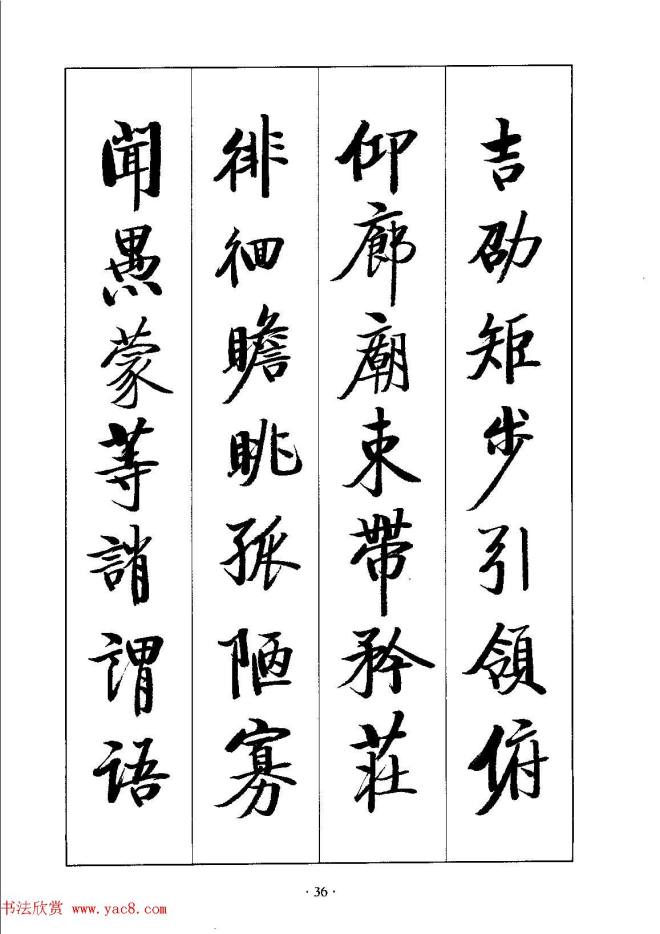 吉劭矩步引領俯
仰廊廟束帶矜莊
徘徊瞻眺孤陋寡
聞愚蒙等誚謂語
·36·
书法欣赏 www.yac8.com